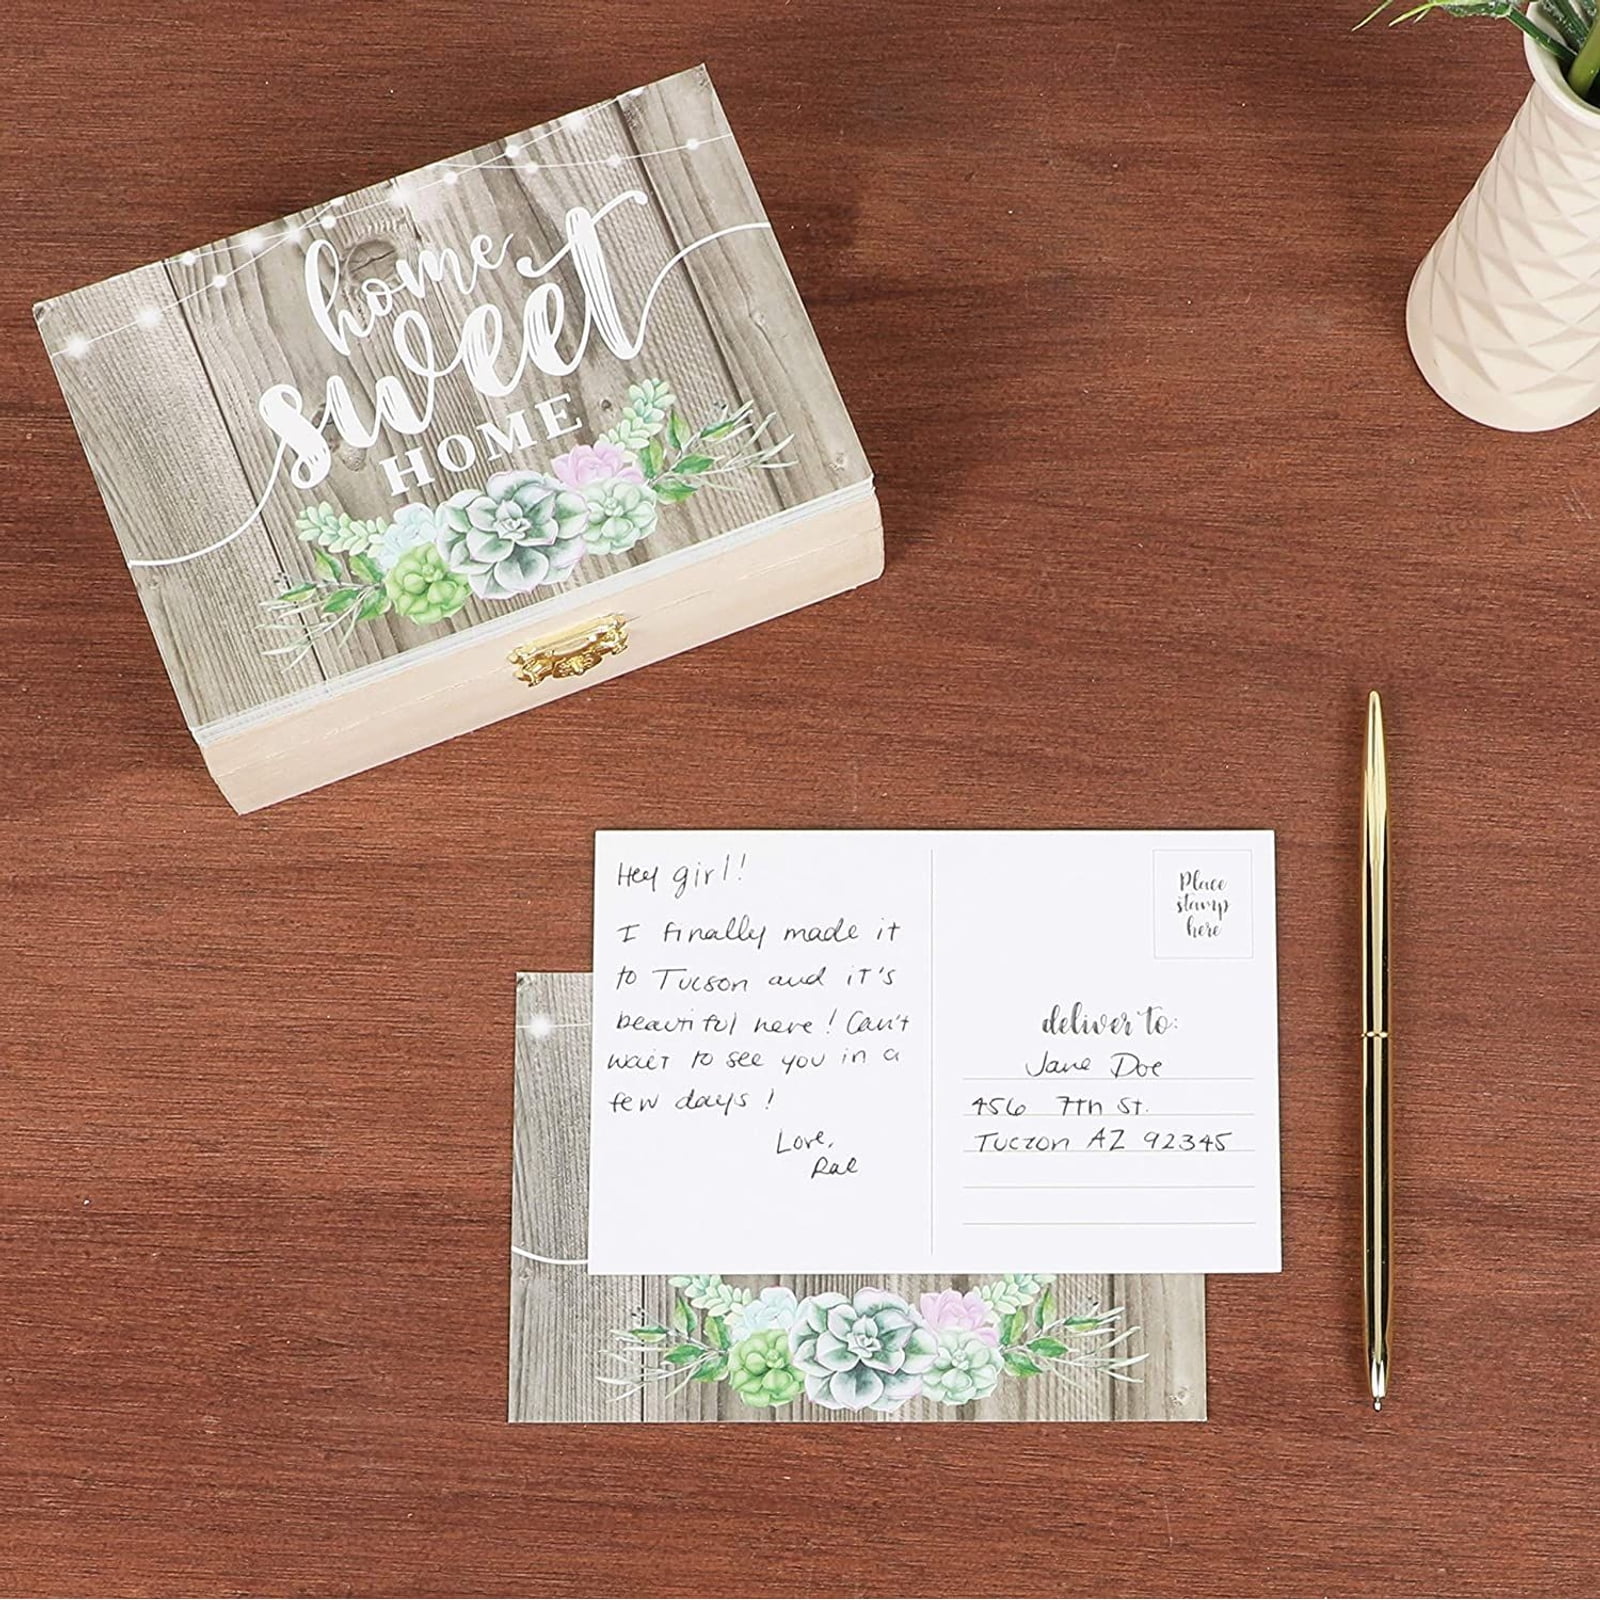 home
sweet
HOME
Hey girl!
I finally made it
to Tucson and it's
beautiful here! Can't
wait to see you in a
few days!
Love,
Rae
Place
stamp
here
deliver to:
Jane Doe
456 7th St.
Tuczon AZ 92345